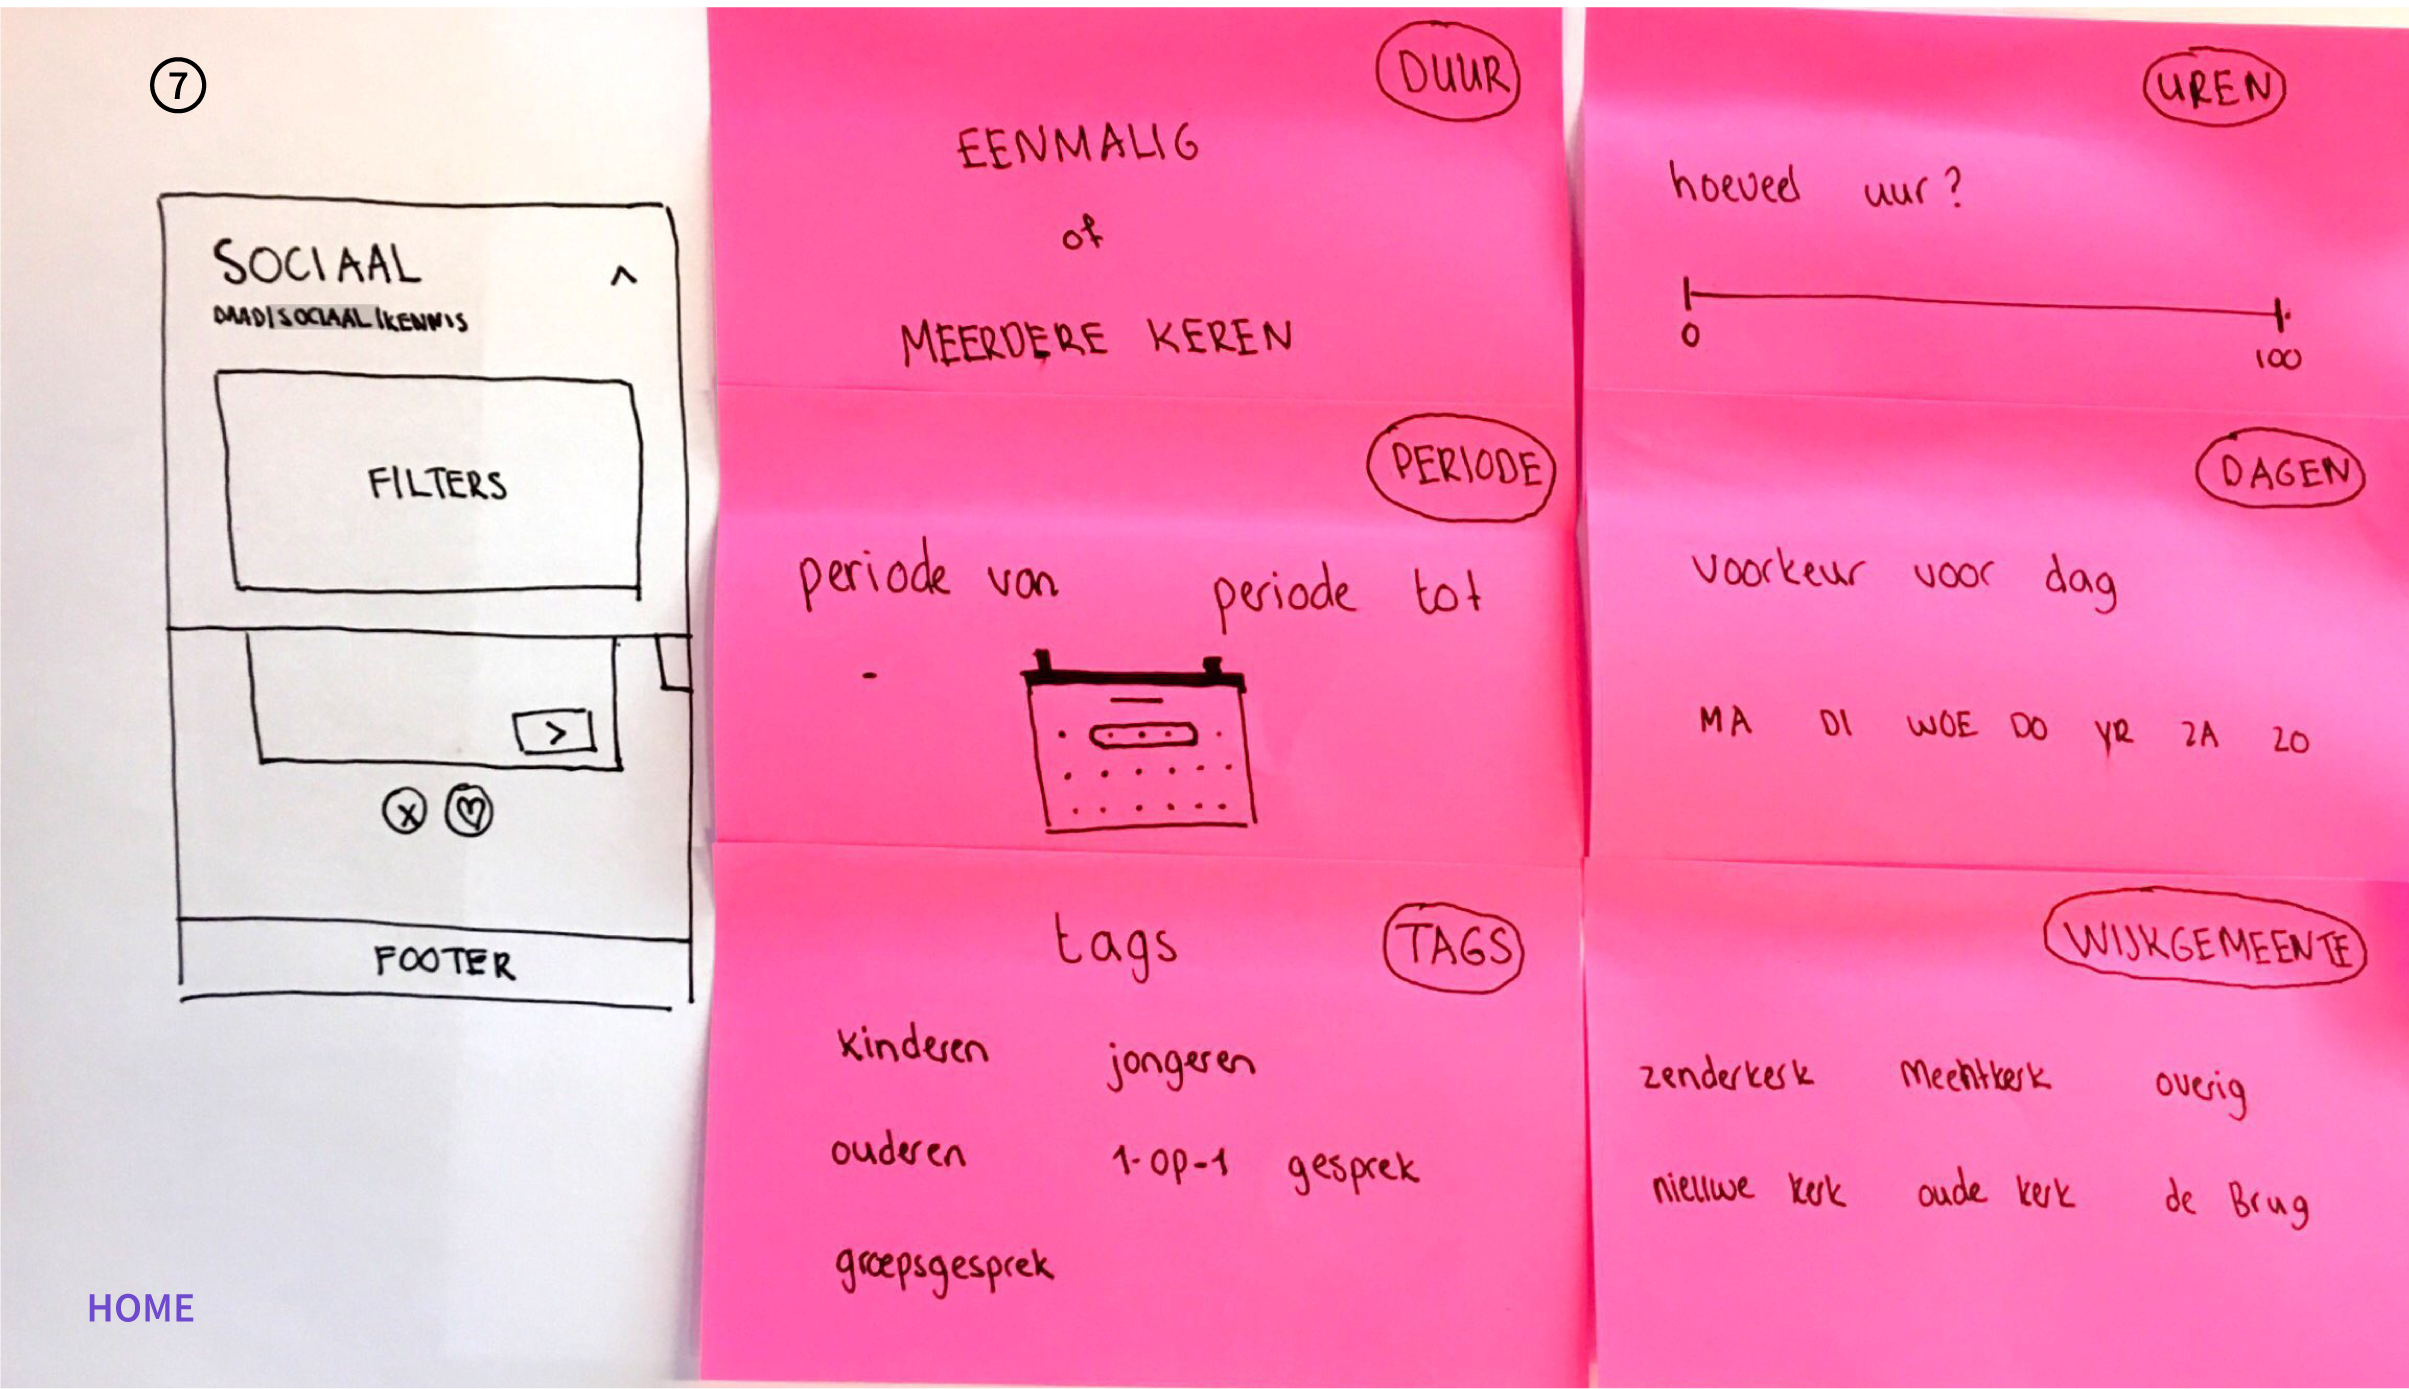 7
SOCIAAL ^
DAAD|SOCIAAL|KENNIS
FILTERS
>
X
FOOTER
HOME
DUUR
EENMALIG
of
MEERDERE KEREN
UREN
hoeveel uur?
0
100
PERIODE
periode van periode tot
-
DAGEN
voorkeur voor dag
MA DI WOE DO VR ZA ZO
TAGS
tags
kinderen jongeren
ouderen 1-op-1 gesprek
groepsgesprek
WIJKGEMEENTE
zenderkerk Meentkerk overig
nieuwe kerk oude kerk de Brug